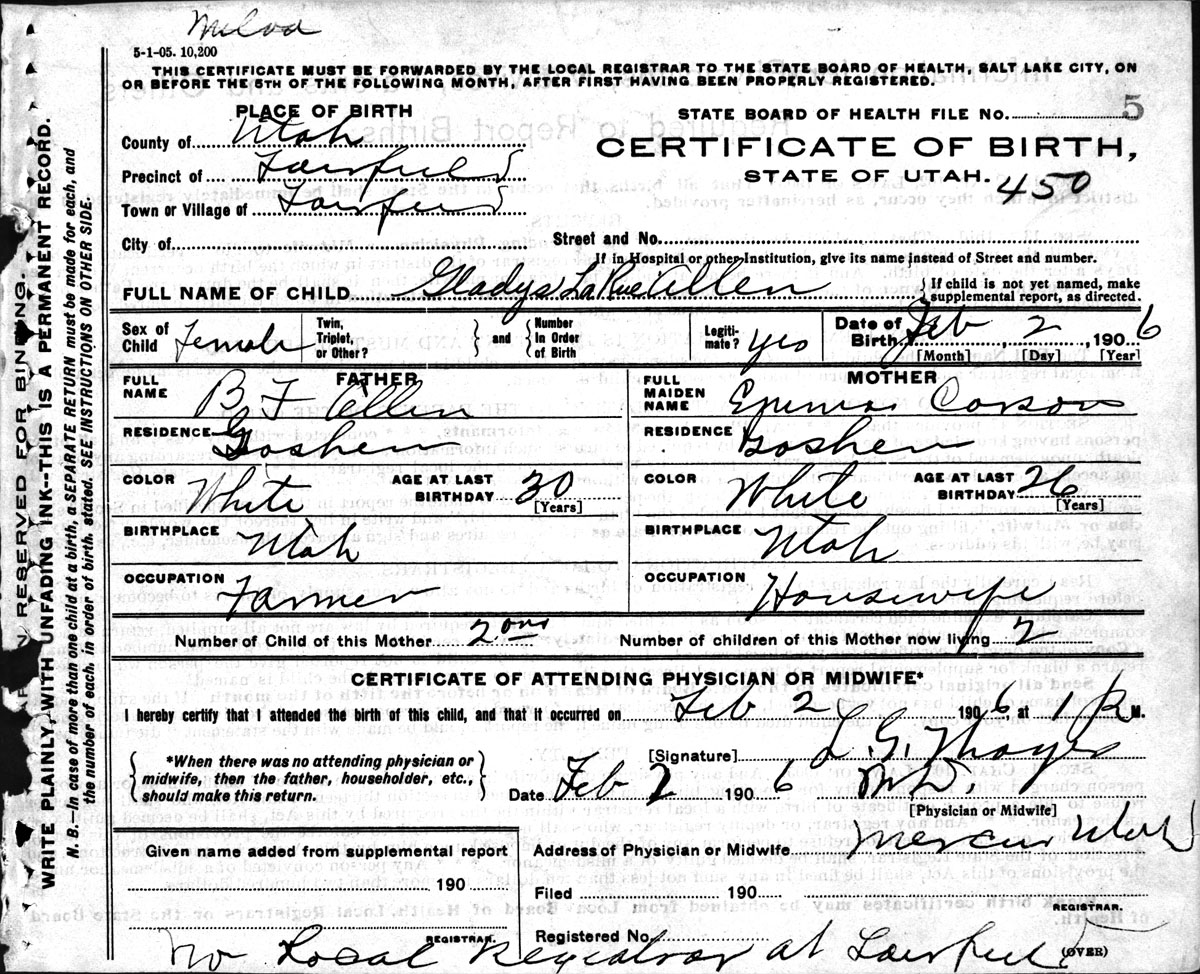 5-1-05. 10,200
THIS CERTIFICATE MUST BE FORWARDED BY THE LOCAL REGISTRAR TO THE STATE BOARD OF HEALTH, SALT LAKE CITY, ON
OR BEFORE THE 5TH OF THE FOLLOWING MONTH, AFTER FIRST HAVING BEEN PROPERLY REGISTERED.
PLACE OF BIRTH
County of Utah
Precinct of Fairfield
Town or Village of Fairfield
City of
STATE BOARD OF HEALTH FILE NO. 5
CERTIFICATE OF BIRTH,
STATE OF UTAH. 450
Street and No.
If in Hospital or other Institution, give its name instead of Street and number.
FULL NAME OF CHILD Gladys LaRue Allen { If child is not yet named, make
supplemental report, as directed.
Sex of Child Female
Twin, Triplet, or Other? } and { Number In Order of Birth
Legitimate? yes
Date of Birth Feb 2, 1906
[Month] [Day] [Year]
FATHER
FULL NAME B F Allen
RESIDENCE Goshen
COLOR White AGE AT LAST BIRTHDAY 30 [Years]
BIRTHPLACE Utah
OCCUPATION Farmer
MOTHER
FULL MAIDEN NAME Emma Carson
RESIDENCE Goshen
COLOR White AGE AT LAST BIRTHDAY 26 [Years]
BIRTHPLACE Utah
OCCUPATION Housewife
Number of Child of this Mother 2ond Number of children of this Mother now living 2
CERTIFICATE OF ATTENDING PHYSICIAN OR MIDWIFE*
I hereby certify that I attended the birth of this child, and that it occurred on Feb 2 1906 at 1 P. M.
{ *When there was no attending physician or
midwife, then the father, householder, etc.,
should make this return. }
[Signature] L. G.
Date Feb 2 1906 M.D.
[Physician or Midwife]
Given name added from supplemental report
190
REGISTRAR.
Address of Physician or Midwife Mercur Utah
Filed 190
REGISTRAR.
Registered No.
No Local Registrar at Fairfield
(OVER)
V RESERVED FOR BINDING
WRITE PLAINLY, WITH UNFADING INK--THIS IS A PERMANENT RECORD.
N. B.—In case of more than one child at a birth, a SEPARATE RETURN must be made for each, and
the number of each, in order of birth, stated. SEE INSTRUCTIONS ON OTHER SIDE.